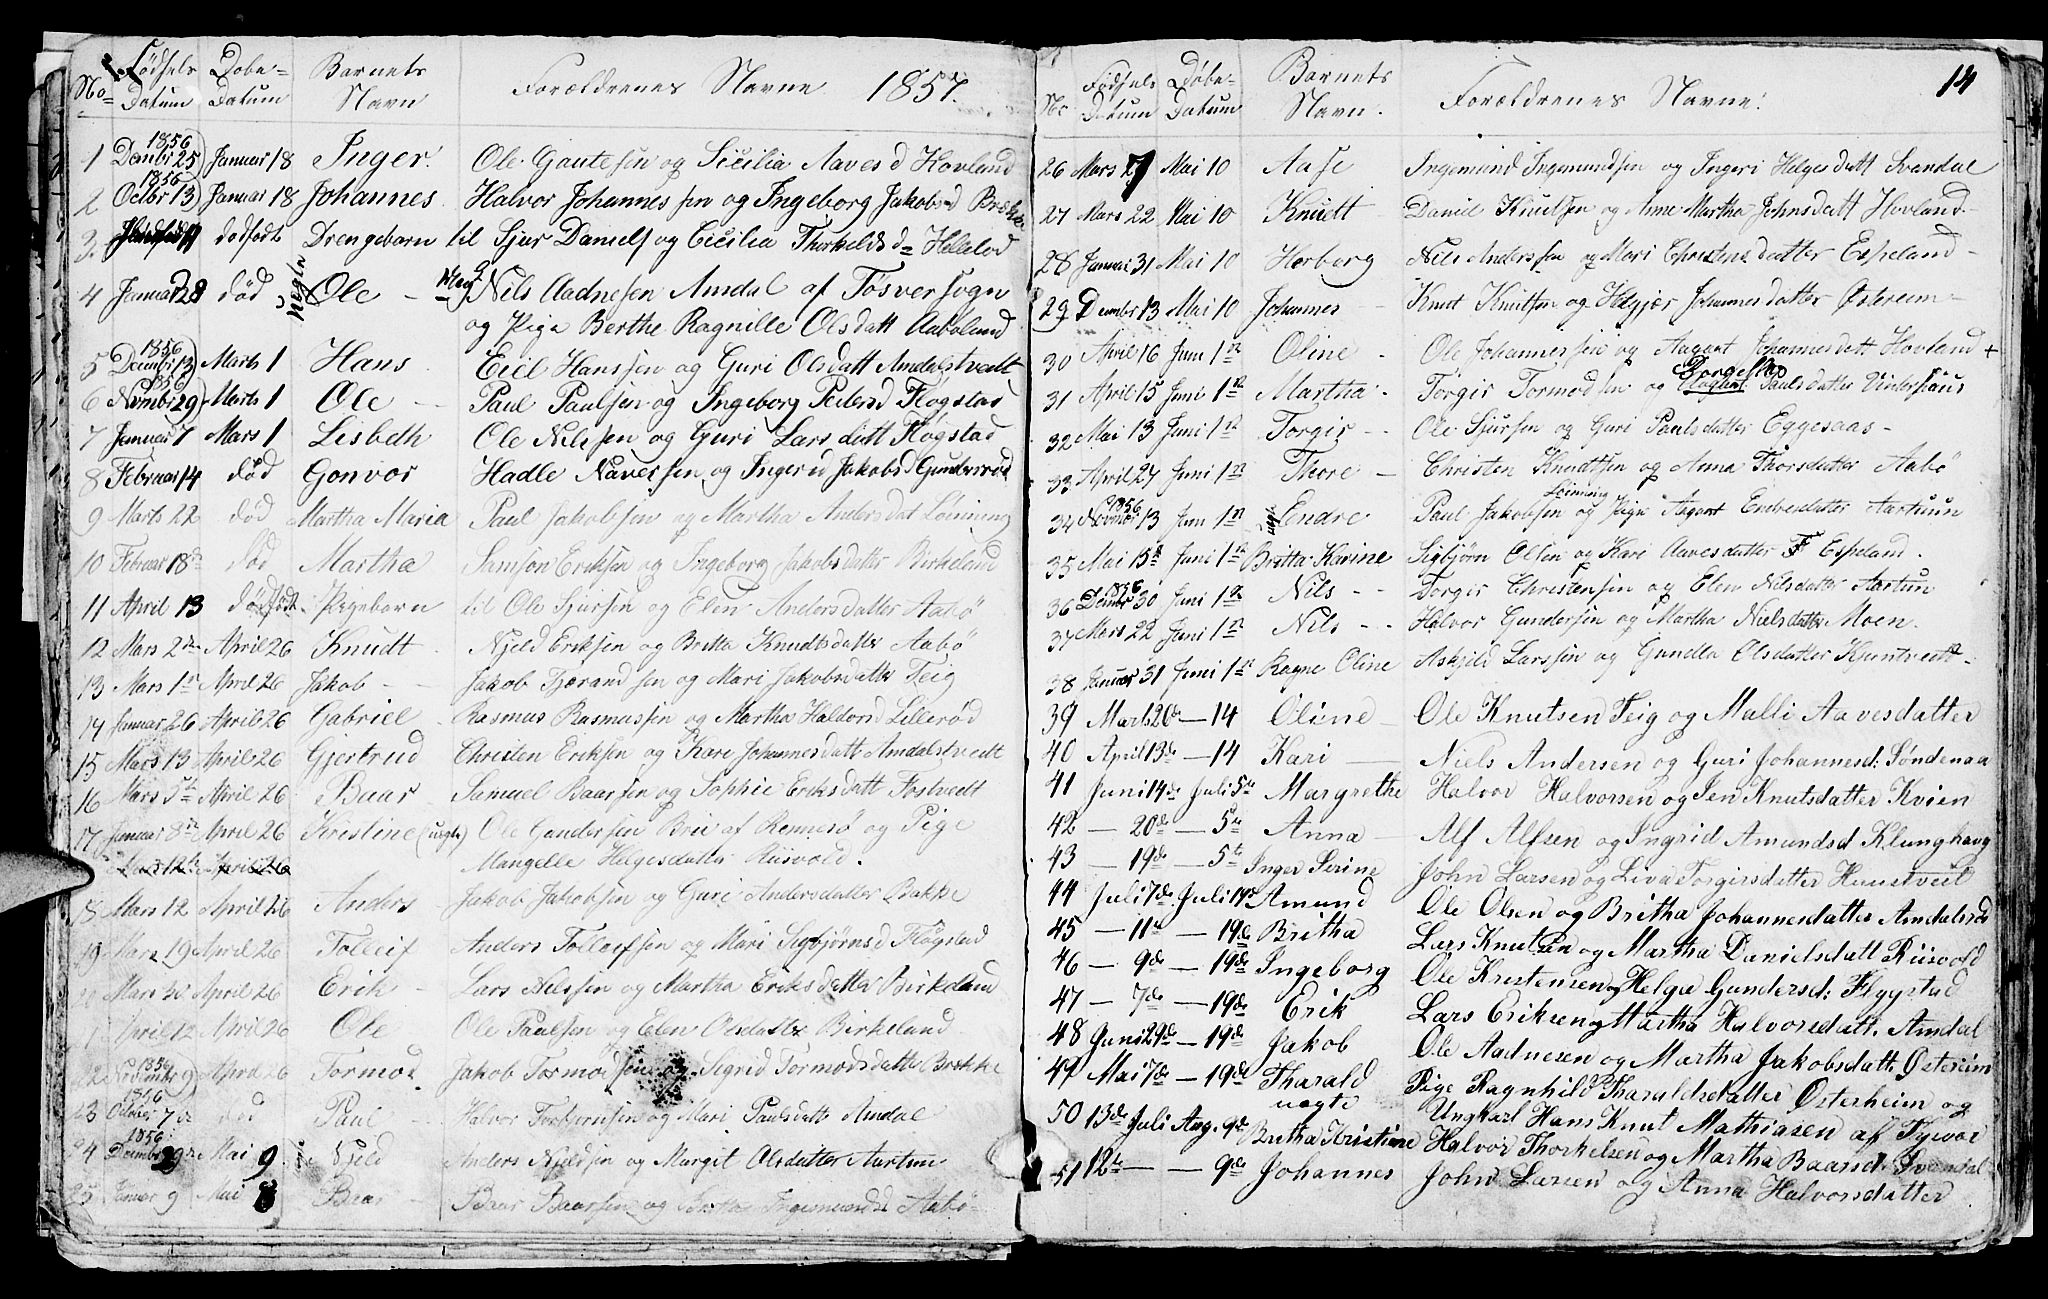 No Fødsels Datum Døbe-Datum Barnets Navn Forældrenes Navne 1857.
1 1856 Decmbr 25 Januar 18 Inger. Ole Gautesen og Sicilia Aavesd Hovland
2 1856 Octbr 13 Januar 18 Johannes Halvor Johannessen og Ingeborg Jakobsd
3. dødfødt Drengebarn til Sjur Daniels og Cicilia Thorkelds d Hellelod
4 Januar 28 død Ole Nils Aadnesen Amdal af Fosver sogn
og Pige Berthe Ragnille Olsdatt Aabøland
5 1856 Decmbr 13 Marts 1 Hans Eiel Hanssen og Guri Olsdatt Amdalstvedt
6 1856 Novmbr 29 Marts 1 Ole Paul Paulsen og Ingeborg Pedersd Fløgstad
7 Januar 7 Mars 1 Lisbeth Ole Nilssen og Guri Larsdatt Fløgstad
8 Februar 14 død Gonvor Hadle Naversen og Ingerid Jakobsd
9 Marts 22 død Martha Maria Paul Jakobsen og Martha Andersdat Løinning
10 Februar 18de død Martha Samson Eriksen og Ingeborg Jakobsdatter Birkeland
11 April 13 dødfødt Pigebarn til Ole Sjursen og Elen Andersdatter Aabø
12 Mars 2den April 26 Knudt Njeld Eriksen og Britta Knudtsdatter Aabø
13 Mars 1st April 26 Jakob Jakob Tjerandsen og Mari Jakobsdatter Teig
14 Januar 26 April 26 Gabriel Rasmus Rasmussen og Martha Haldorsd Lillerød
15 Mars 13 April 26 Gjertrud Christen Eriksen og Kari Johannesdatt Amdalstvedt
16 Mars 5te April 26 Baar Samuel Baarsen og Sophie Eriksdatt Fostvedt
17 Januar 8de April 26 Kristine (uægte) Ole Gundersen Brie af Rennesø og Pige
Mangelle Helgesdatter Risvold.
Mars 12te April 26
18 Mars 12 April 26 Anders Jakob Jakobsen og Guri Andersdatter Bakke
19 Mars 19 April 26 Tolleif Anders Tolleifsen og Mari Sigbjørnsd Fløgstad
20 Mars 30 April 26 Erik Lars Nilssen og Martha Eriksdatter Birkeland
April 12 April 26 Ole Ole Paulsen og Elen Olsdatter Birkeland
22 1856 Novembr 9 April 26 Tormod Jakob Tormodsen og Sigrid Tormodsdatter Brekke
23 1856 October 7de død Paul Halvor Torbjørnsen og Mari Paulsdatt Amdal
24 1856 Decmbr 29 Mai 9 Njeld Anders Njeldsen og Margit Olsdatter Aartun
25 Januar 9 Mai 8 Baar Baar Baarsen og Britta Ingemundsd Aabø
No Fødsels Datum Døbe-Datum Barnets Navn. Forældrenes Navne. 14
26 Mars 7 Mai 10 Aase Ingemund Ingemundsen og Ingeri Helgesdatt Svandal
27 Mars 22 Mai 10 Knudt Daniel Knutsen og Anne Martha Johnsdatt Hovland
28 Januar 31 Mai 10 Herborg Nils Anderssen og Mari Christensdatter Espeland
29 Decmbr 13 Mai 10 Johannes Knut Knutsen og Helgjer Johannesdatter Østereim
30 April 16 Juni 1ste Oline Ole Johannessen og Aagaat Johannesdatt Hovland +
31 April 15 Juni 1ste Martha Torgir Tormodsen og Borgella Paulsdatter Vintershuus
32 Mai 13 Juni 1ste Torgir Ole Sjursen og Guri Paulsdatter Eggesaas
33 April 27 Juni 1ste Thore Christen Knudtsen og Anna Thorsdatter Aabø
34 1856 Novmbr 13 Juni 1ste Endre Paul Jakobsen Løinning og Pige Aagaat Endresdatter Aartuun
35 Mai 15de Juni 1ste Britta Karine Sigbjørn Olsen og Kari Aavesdatter Espeland.
36 1856 Decmbr 30 Juni 1ste Nils Torgir Christensen og Elen Nilsdatter Aartun
37 Mars 22 Juni 1ste Nils Halvor Gundersen og Martha Nielsdatter Moen.
38 Januar 31 Juni 1ste Ragne Oline Askjeld Larssen og Gundla Olsdatter
39 Marts 20de — 14 Oline Ole Knutsen Teig og Malli Aavesdatter
40 April 13de — 14 Kari Niels Andersen og Guri Johannesd: Søndenaa
41 Juni 14de Juli 5te Margrethe Halvor Halvorsen og Sen Knutsdatter Kvien
42 — 20de — 5te Anna Alf Alfsen og Ingrid Amundsd Klunghaug
43 — 19de — 5te Inger Serine John Larsen og Liva Torgirsdatter Hamtveit
44 Juli 7de Juli 19de Amund Ole Olsen og Britha Johannesdatter
45 — 11te — 19de Britha Lars Knutsen og Martha Danielsdatt Riisvold
46 — 9de — 19de Ingeborg Ole Kristensen og Helga Gundersd: Fløgstad
47 — 7de — 19de Erik Lars Eriksen og Martha Halvorsdatt. Amdal
48 Juni 29de — 19de Jakob Ole Aadnesen og Martha Jakobsdatt. Østereim
49 Mai 7de — 19de Tharald uægte Pige Ragnhild Tharaldsdatter Østerheim og
Ungkarl Hans Knut Mathiasen af Tysvær
50 13de Juli Aug. 9de Britha Kristine Halvor Thorkelsen og Martha Baarsd. Svandal
51 12te — — 9de Johannes John Larsen og Anna Halvorsdatter